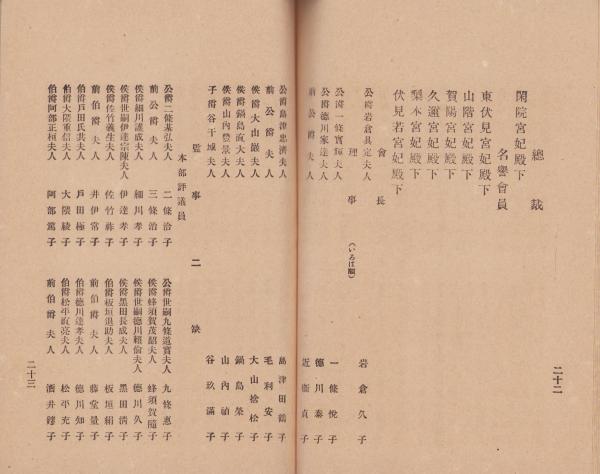 二十二
總裁
閑院宮妃殿下
名譽會員
東伏見宮妃殿下
山階宮妃殿下
賀陽宮妃殿下
久邇宮妃殿下
梨本宮妃殿下
伏見若宮妃殿下
會長
公爵岩倉具定夫人 岩倉久子
理事 (いろは順)
公爵一條實輝夫人 一條悅子
公爵德川家達夫人 德川泰子
前公爵夫人 近衞貞子
公爵島津忠濟夫人 島津田鶴子
前公爵夫人 毛利安子
侯爵大山巖夫人 大山捨松子
侯爵鍋島直大夫人 鍋島榮子
侯爵山內豊景夫人 山內禎子
子爵谷干城夫人 谷玖滿子
監事 二缺
本部評議員
公爵二條基弘夫人 二條洽子
前公爵夫人 三條治子
侯爵細川護成夫人 細川孝子
侯爵世嗣伊達宗陳夫人 伊達孝子
侯爵佐竹義生夫人 佐竹
前伯爵夫人 井伊常子
伯爵戶田氏共夫人 戶田極子
伯爵大隈重信夫人 大隈綾子
伯爵阿部正桓夫人 阿部篤子
公爵世嗣九條道實夫人 九條惠子
侯爵蜂須賀茂韶夫人 蜂須賀隨子
侯爵世嗣德川賴倫夫人 德川久子
侯爵黑田長成夫人 黑田淸子
伯爵板垣退助夫人 板垣絹子
前伯爵夫人 藤堂量子
伯爵德川達孝夫人 德川知子
伯爵松平直亮夫人 松平充子
前伯爵夫人 酒井子
二十三